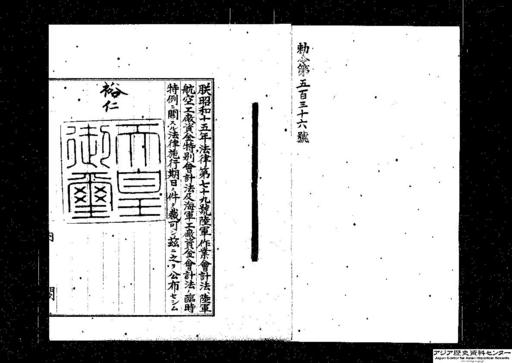 勅令第五百三十六號
朕昭和十五年法律第七十九號陸軍作業會計法陸軍
航空工廠資金特別會計法及海軍工廠資金會計法ノ臨時
特例ニ關スル法律施行期日ノ件ヲ裁可シ茲ニ之ヲ公布セシム
裕仁
天皇
御璽
内閣
アジア歴史資料センター
Japan Center for Asian Historical Records